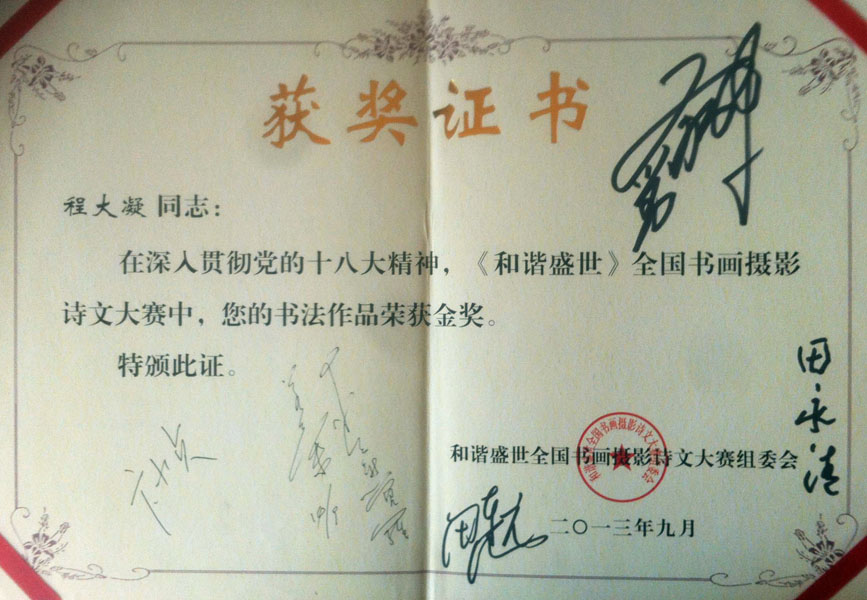 获奖证书
程大凝 同志：
在深入贯彻党的十八大精神，《和谐盛世》全国书画摄影
诗文大赛中，您的书法作品荣获金奖。
特颁此证。
田永清
和谐盛世全国书画摄影诗文大赛组委会
二〇一三年九月